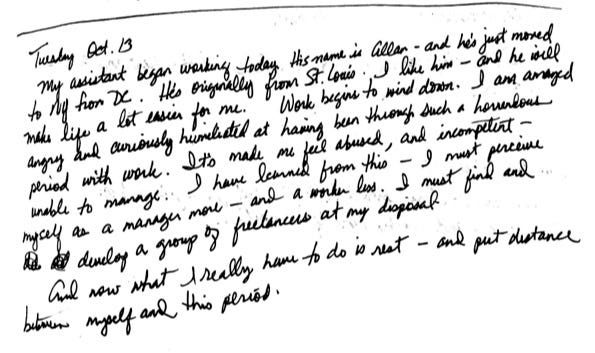 Tuesday Oct. 13
My assistant began working today. His name is Allan - and he's just moved
to NY from DC. He's originally from St. Louis. I like him - and he will
make life a lot easier for me. Work begins to wind down. I am amazed
angry and curiously humiliated at having been through such a horrendous
period with work. It's made me feel abused, and incompetent -
unable to manage. I have learned from this - I must perceive
myself as a manager more - and a worker less. I must find and
develop a group of freelancers at my disposal
And now what I really have to do is rest - and put distance
between myself and this period.